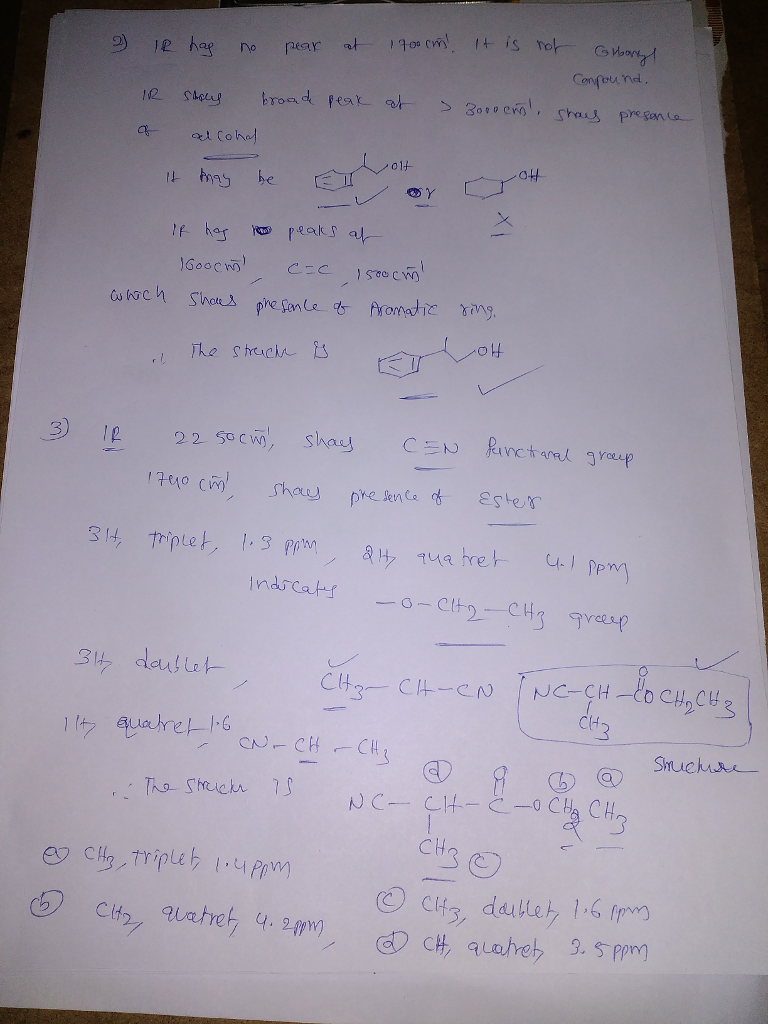 2) IR has no peak at 1700 cm⁻¹. It is not Carbonyl
Compound.
IR shows broad peak at > 3000 cm⁻¹, shows presence
of alcohol
It may be OH or OH
IR has peaks at
1600 cm⁻¹, C=C, 1500 cm⁻¹
which shows presence of Aromatic ring.
∴ The structure is OH
3) IR 2250 cm⁻¹, shows C≡N functional group
1740 cm⁻¹, shows presence of Ester
3H, triplet, 1.3 ppm, 2H, quatret 4.1 ppm
Indicates -O-CH2-CH3 group
3H, doublet, CH3-CH-CN
NC-CH-COCH2CH3
O
CH3
Structure
1H, quatret 1.6, CN-CH-CH3
∴ The structure is NC-CH-C-OCH2CH3
O
CH3
(d) (b) (a)
(c)
(a) CH3, triplet, 1.4 ppm
(b) CH2, quatret, 4.2 ppm,
(c) CH3, doublet, 1.6 ppm
(d) CH, quatret, 3.5 ppm